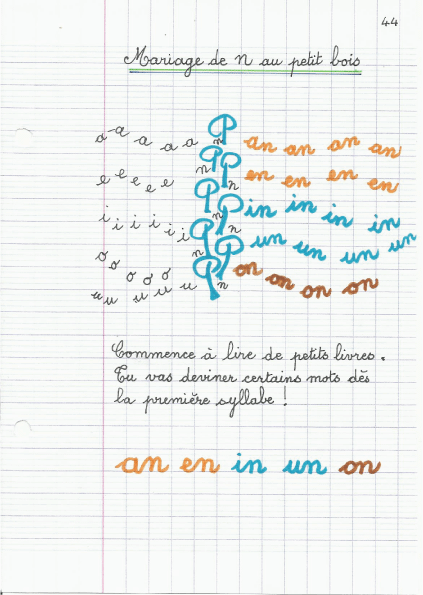 44
Mariage de n au petit bois
a a a a a n an an an an
e e e e e n n en en en en
i i i i i i n n in in in in
n un un un un
o o o o o n on on on on
u u u u u
Commence à lire de petits livres.
Tu vas deviner certains mots dès
la première syllabe !
an en in un on